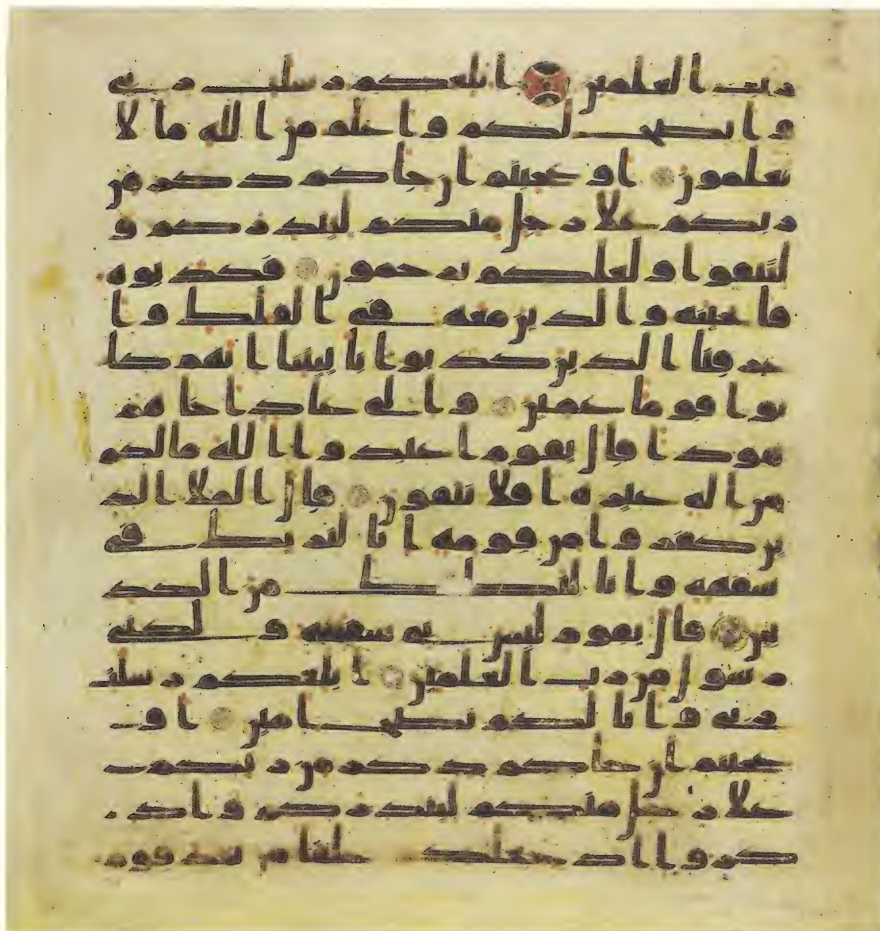 رب العلمين ابلغكم رسلت ربى
وانصح لكم واعلم من الله ما لا
تعلمون اوعجبتم ان جاكم ذكر من
ربكم علا رجل منكم لينذركم و
لتتقوا ولعلكم ترحمون فكذبوه
فانجينه والذين معه فى الفلك وا
غرقنا الذين كذبوا باىتنا انهم كا
نوا قوما عمين والى عاد اخاهم
هودا قال يقوم اعبدوا الله مالكم
من اله غيره افلا تتقون قال الملا الذ
ين كفروا من قومه انا لنريك فى
سفهه وانا لنظنك من الكذ
بين قال يقوم ليس بى سفهه ولكنى
رسول من رب العلمين ابلغكم رسلت
ربى وانا لكم نصح امين او
عجبتم ان جاكم ذكر من ربكم
علا رجل منكم لينذركم واذ
كروا اذ جعلكم خلفا من بعد قوم